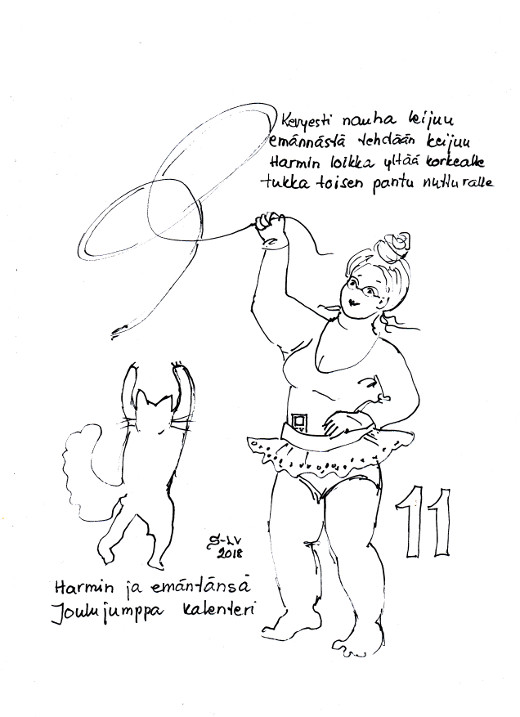 Kevyesti nauha leijuu
emännästä tehdään keijuu
Harmin loikka yltää korkealle
tukka toisen pantu nutturalle
11
S-LV
2018
Harmin ja emäntänsä
Joulujumppa kalenteri